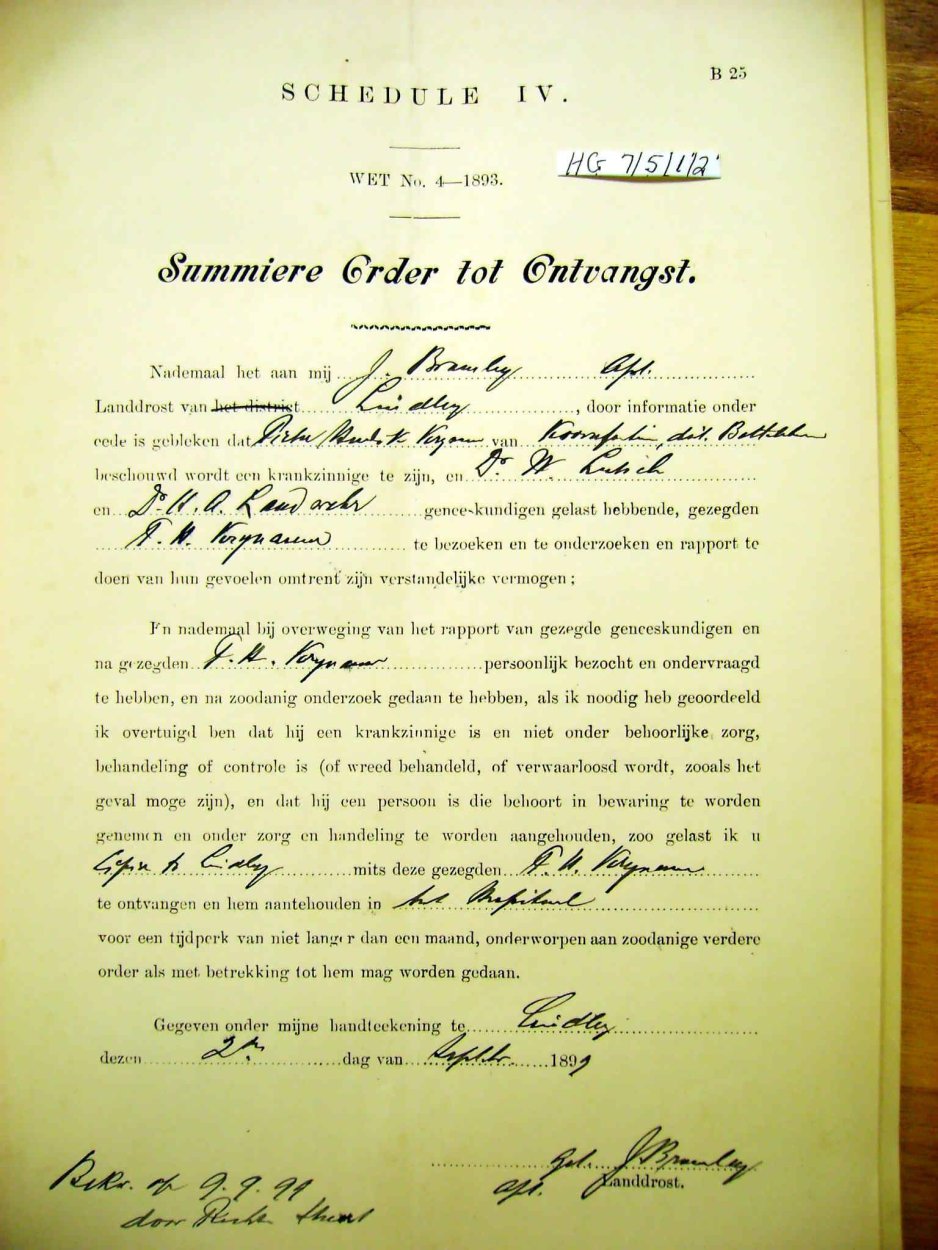 B 25
SCHEDULE IV.
HG 7/5/1/2
WET No. 4—1893.
Summiere Order tot Ontvangst.
Nademaal het aan mij J. Bramley Apl.
Landdrost van het district Lindley, door informatie onder
eede is gebleken dat van
beschouwd wordt een krankzinnige te zijn, en Dr. W.
en Dr. H. A. Landwehr geneeskundigen gelast hebbende, gezegden
te bezoeken en te onderzoeken en rapport te
doen van hun gevoelen omtrent zijn verstandelijke vermogen;
En nademaal bij overweging van het rapport van gezegde geneeskundigen en
na gezegden persoonlijk bezocht en ondervraagd
te hebben, en na zoodanig onderzoek gedaan te hebben, als ik noodig heb geoordeeld
ik overtuigd ben dat hij een krankzinnige is en niet onder behoorlijke zorg,
behandeling of controle is (of wreed behandeld, of verwaarloosd wordt, zooals het
geval moge zijn), en dat hij een persoon is die behoort in bewaring te worden
genemen en onder zorg en handeling te worden aangehouden, zoo gelast ik u
Lindley mits deze gezegden
te ontvangen en hem aantehouden in het
voor een tijdperk van niet langer dan een maand, onderworpen aan zoodanige verdere
order als met betrekking tot hem mag worden gedaan.
Gegeven onder mijne handteekening te Lindley
dezen 2de dag van Septbr. 1899
Get. J. Bramley
Apl. Landdrost.
Bekr. op 9.9.99
door Rechter